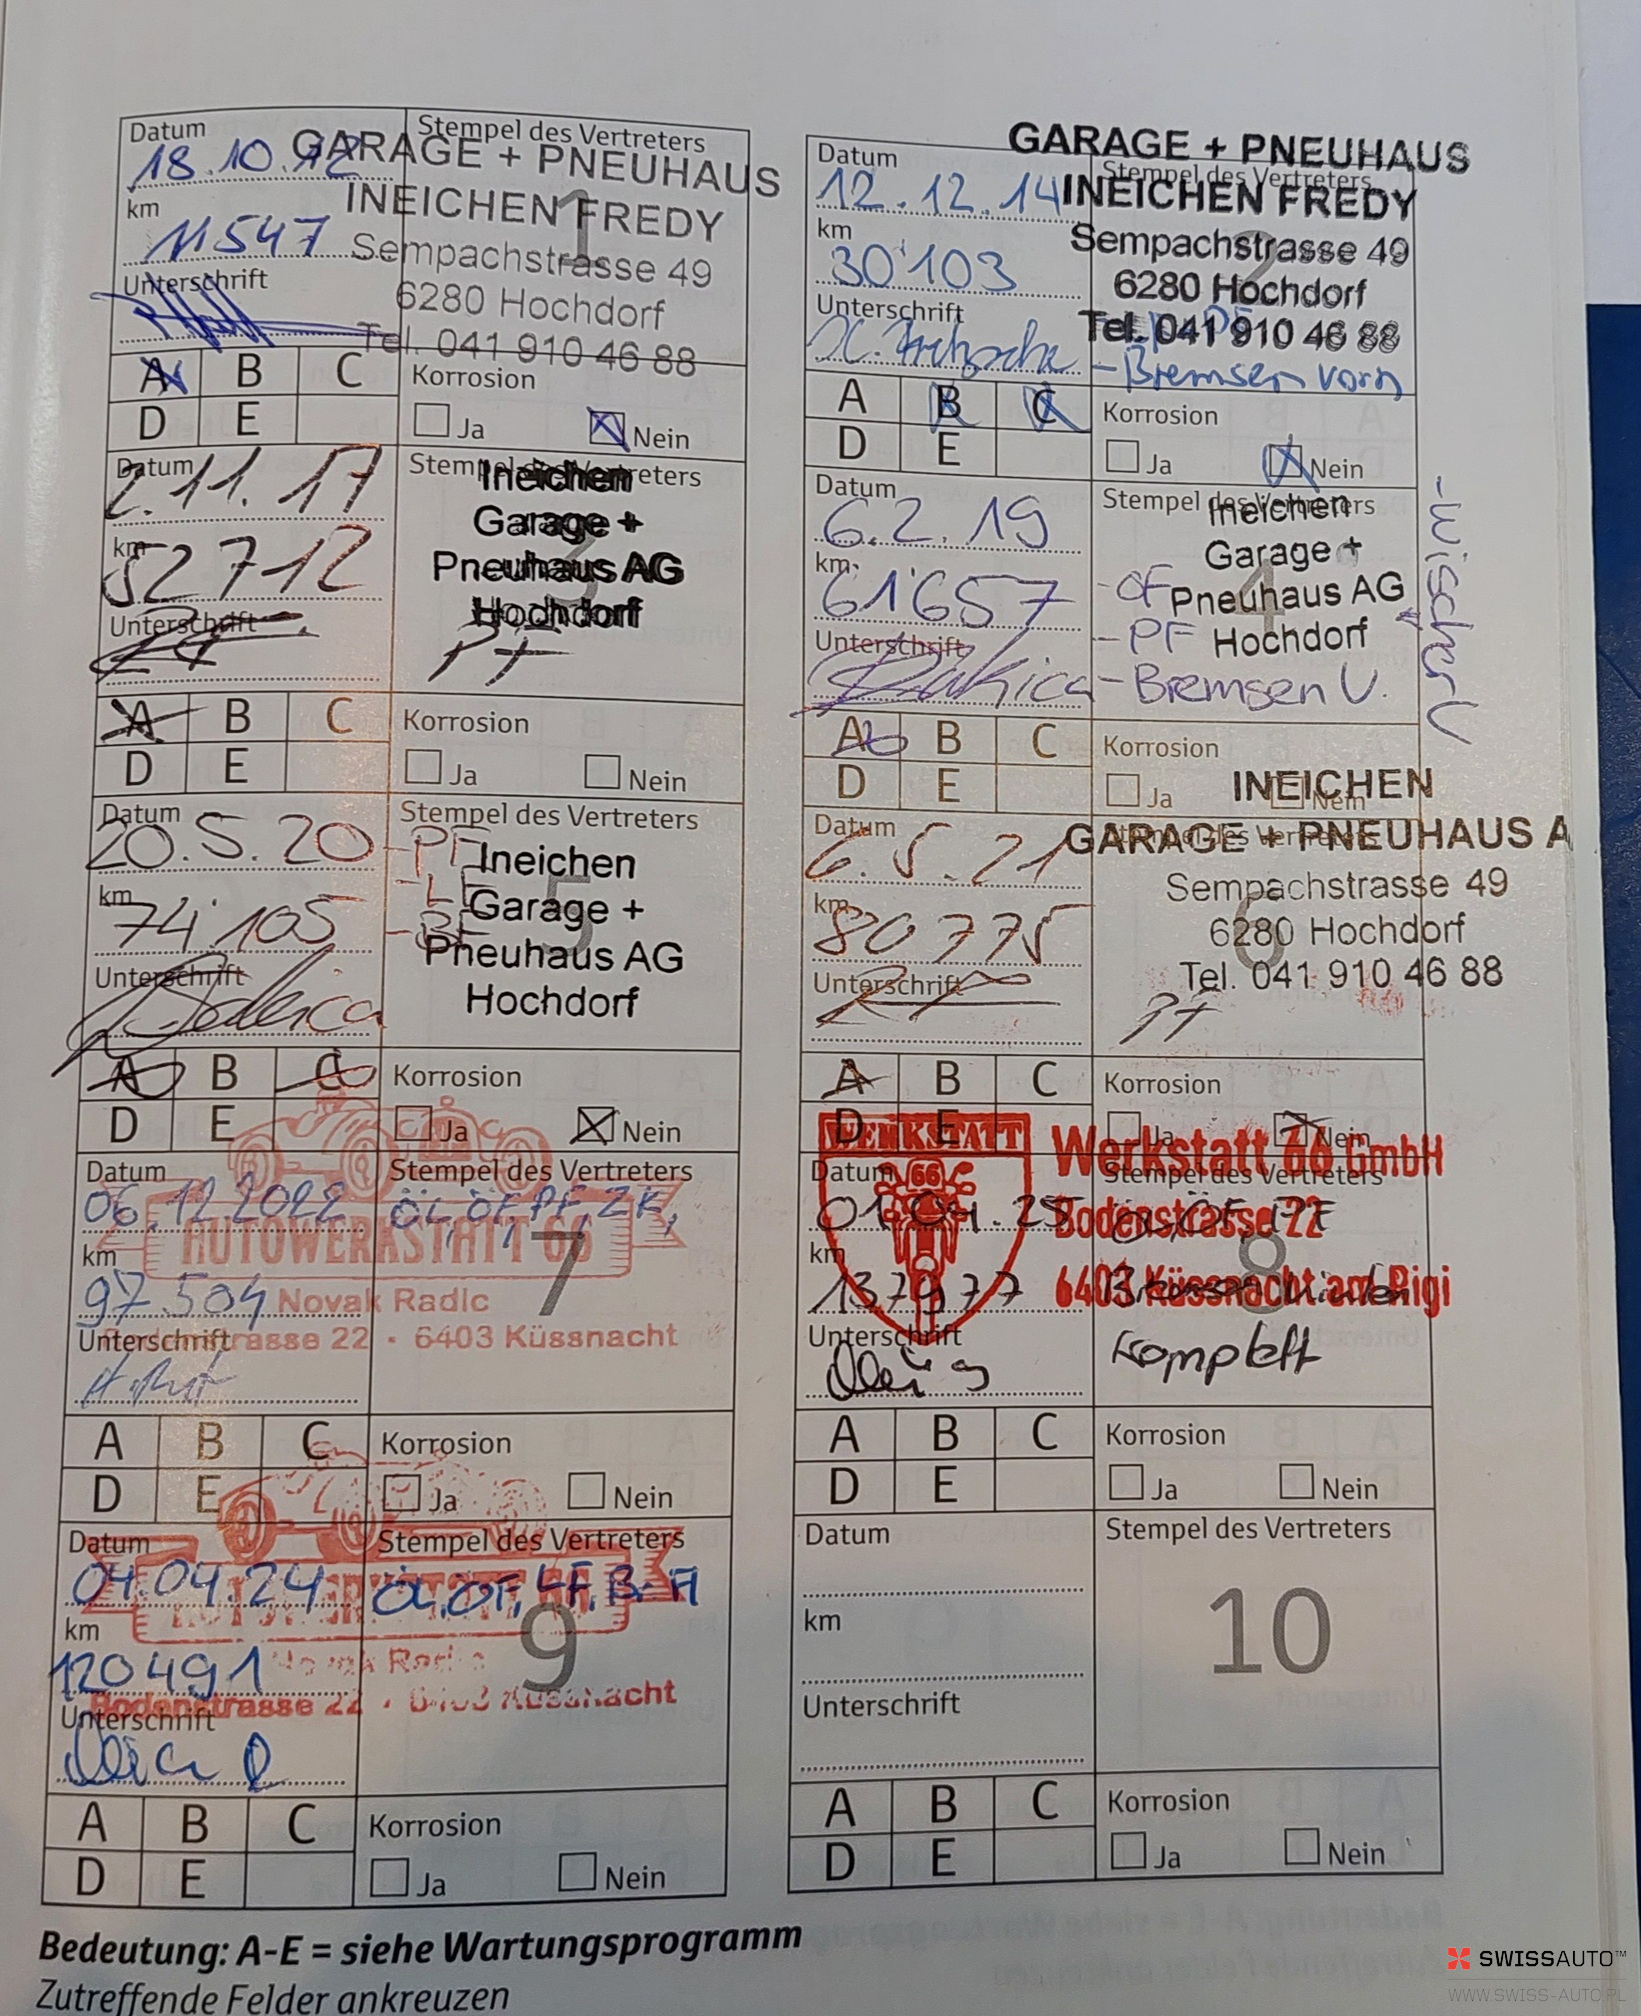 Datum
Stempel des Vertreters
18.10.12
GARAGE + PNEUHAUS
km
INEICHEN FREDY
1
11547
Sempachstrasse 49
Unterschrift
6280 Hochdorf
Tel. 041 910 46 88
A B C
Korrosion
D E
Ja Nein
Datum
Stempel des Vertreters
GARAGE + PNEUHAUS
12.12.14
INEICHEN FREDY
km
Sempachstrasse 49
2
30'103
6280 Hochdorf
Unterschrift
Tel. 041 910 46 88
- Bremsen vorn
A B C
Korrosion
D E
Ja Nein
Datum
Stempel des Vertreters
2.11.17
Ineichen
km
Garage +
3
52712
Pneuhaus AG
Unterschrift
Hochdorf
A B C
Korrosion
D E
Ja Nein
Datum
Stempel des Vertreters
6.2.19
Ineichen
km
Garage +
4
61'657
- OF
Pneuhaus AG
Unterschrift
- PF
Hochdorf
- Bremsen V.
- Wischer V
A B C
Korrosion
D E
Ja Nein
Datum
Stempel des Vertreters
20.5.20
- PF
Ineichen
km
Garage +
5
74'105
Pneuhaus AG
Unterschrift
Hochdorf
A B C
Korrosion
D E
Ja Nein
Datum
INEICHEN
6.5.21
GARAGE + PNEUHAUS A
km
Sempachstrasse 49
6
80775
6280 Hochdorf
Unterschrift
Tel. 041 910 46 88
A B C
Korrosion
D E
Ja Nein
Datum
Stempel des Vertreters
06.12.2022
ÖL, ÖF, PF, ZK,
AUTOWERKSTATT 66
km
7
97.504
Novak Radic
Unterschrift
strasse 22 • 6403 Küssnacht
A B C
Korrosion
D E
Ja Nein
WERKSTATT
66
Werkstatt 66 GmbH
Datum
Stempel des Vertreters
01.04.25
Bodenstrasse 22
km
8
137977
6403 Küssnacht am Rigi
Unterschrift
komplett
A B C
Korrosion
D E
Ja Nein
Datum
Stempel des Vertreters
04.04.24
ÖL, ÖF,
km
9
120491
Bodenstrasse 22 • 6403 Küssnacht
Unterschrift
A B C
Korrosion
D E
Ja Nein
Datum
Stempel des Vertreters
km
10
Unterschrift
A B C
Korrosion
D E
Ja Nein
Bedeutung: A-E = siehe Wartungsprogramm
Zutreffende Felder ankreuzen
SWISSAUTO™
WWW.SWISS-AUTO.PL